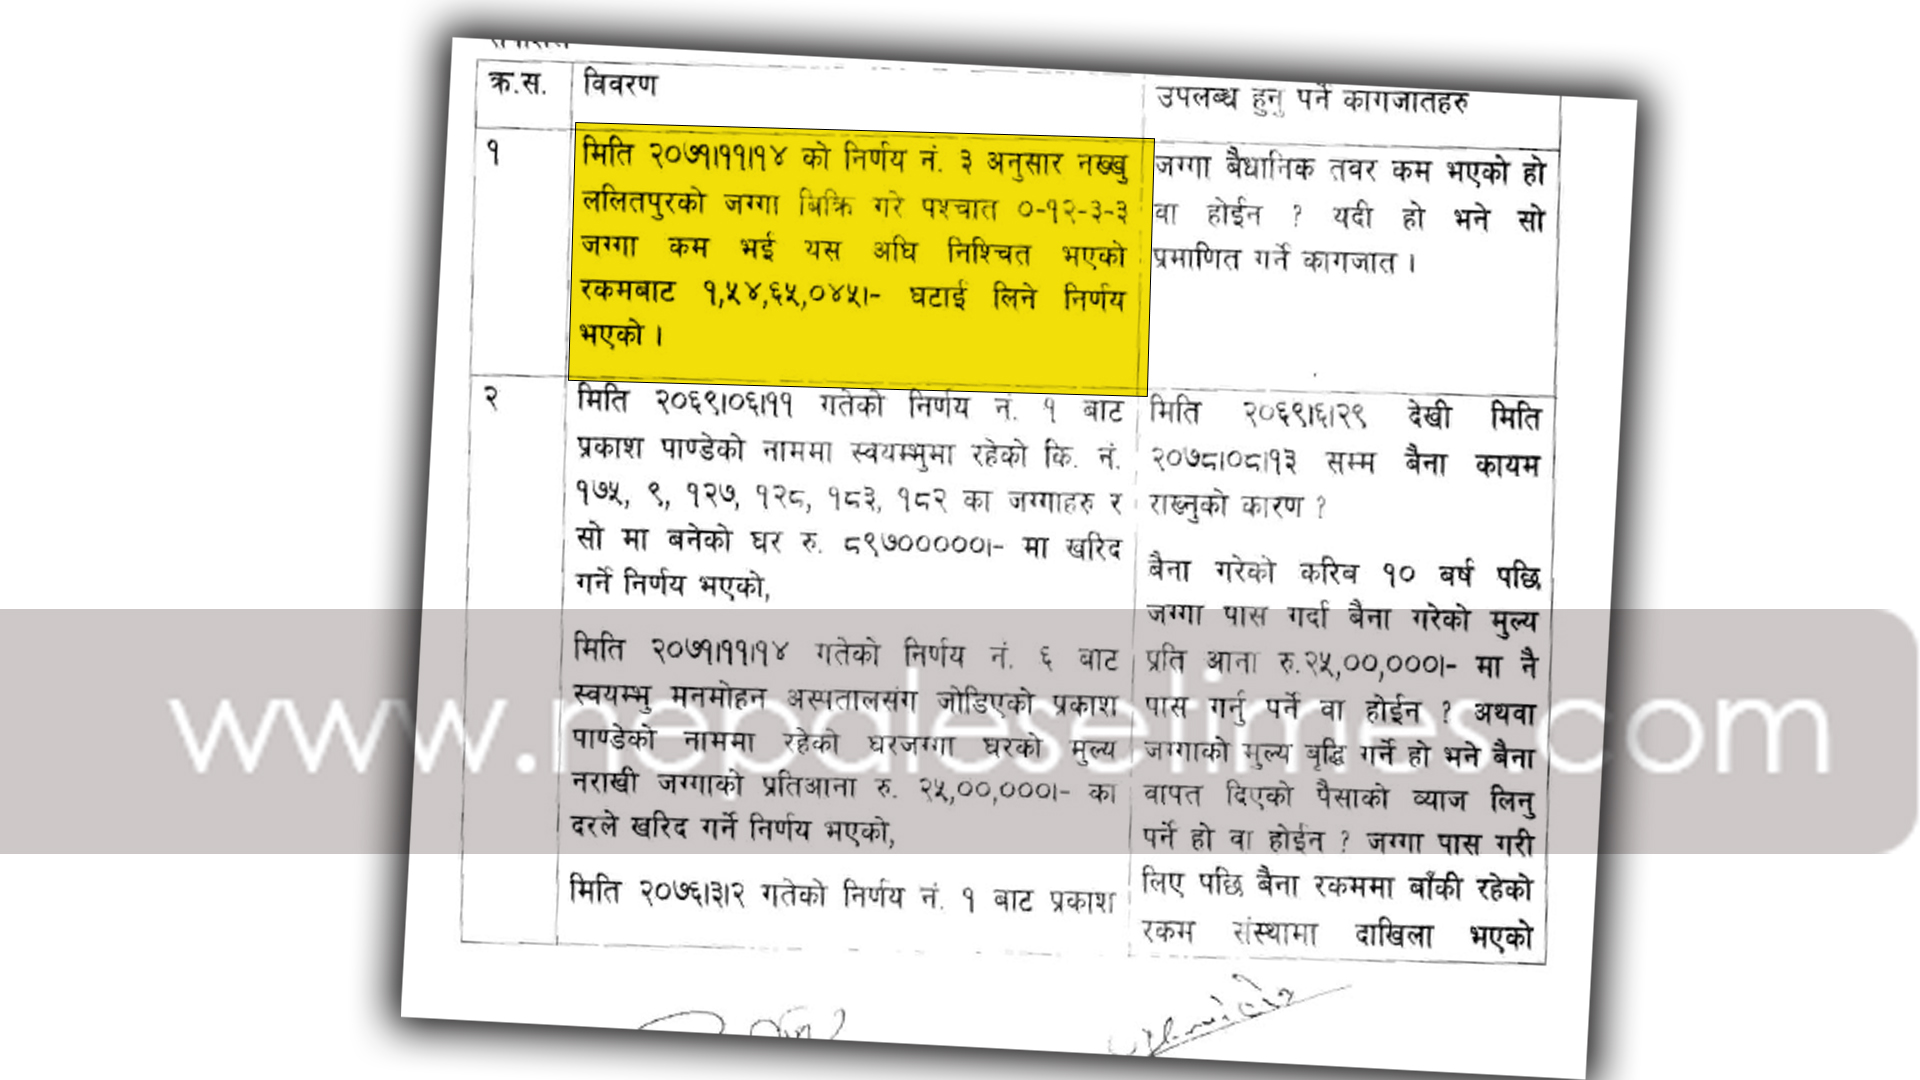 क्र.स.
विवरण
उपलब्ध हुनु पर्ने कागजातहरु
१
मिति २०७१।११।१४ को निर्णय नं. ३ अनुसार नख्खु
ललितपुरको जग्गा बिक्रि गरे पश्चात ०-१२-३-३
जग्गा कम भई यस अघि निश्चित भएको
रकमबाट १,५४,६५,०४५।- घटाई लिने निर्णय
भएको ।
जग्गा बैधानिक तवर कम भएको हो
वा होईन ? यदी हो भने सो
प्रमाणित गर्ने कागजात ।
२
मिति २०६९।०६।११ गतेको निर्णय नं. १ बाट
प्रकाश पाण्डेको नाममा स्वयम्भुमा रहेको कि. नं.
१७५, ९, १२७, १२८, १८३, १८२ का जग्गाहरु र
सो मा बनेको घर रु. ८९७०००००।- मा खरिद
गर्ने निर्णय भएको,
मिति २०७१।११।१४ गतेको निर्णय नं. ६ बाट
स्वयम्भु मनमोहन अस्पतालसंग जोडिएको प्रकाश
पाण्डेको नाममा रहेको घरजग्गा घरको मुल्य
नराखी जग्गाको प्रतिआना रु. २५,००,०००।- का
दरले खरिद गर्ने निर्णय भएको,
मिति २०७६।३।२ गतेको निर्णय नं. १ बाट प्रकाश
मिति २०६९।६।२९ देखी मिति
२०७८।०८।१३ सम्म बैना कायम
राख्नुको कारण ?
बैना गरेको करिब १० बर्ष पछि
जग्गा पास गर्दा बैना गरेको मुल्य
प्रति आना रु.२५,००,०००।- मा नै
पास गर्नु पर्ने वा होईन ? अथवा
जग्गाको मुल्य बृद्धि गर्ने हो भने बैना
वापत दिएको पैसाको व्याज लिनु
पर्ने हो वा होईन ? जग्गा पास गरी
लिए पछि बैना रकममा बाँकी रहेको
रकम संस्थामा दाखिला भएको
www.nepalesetimes.com